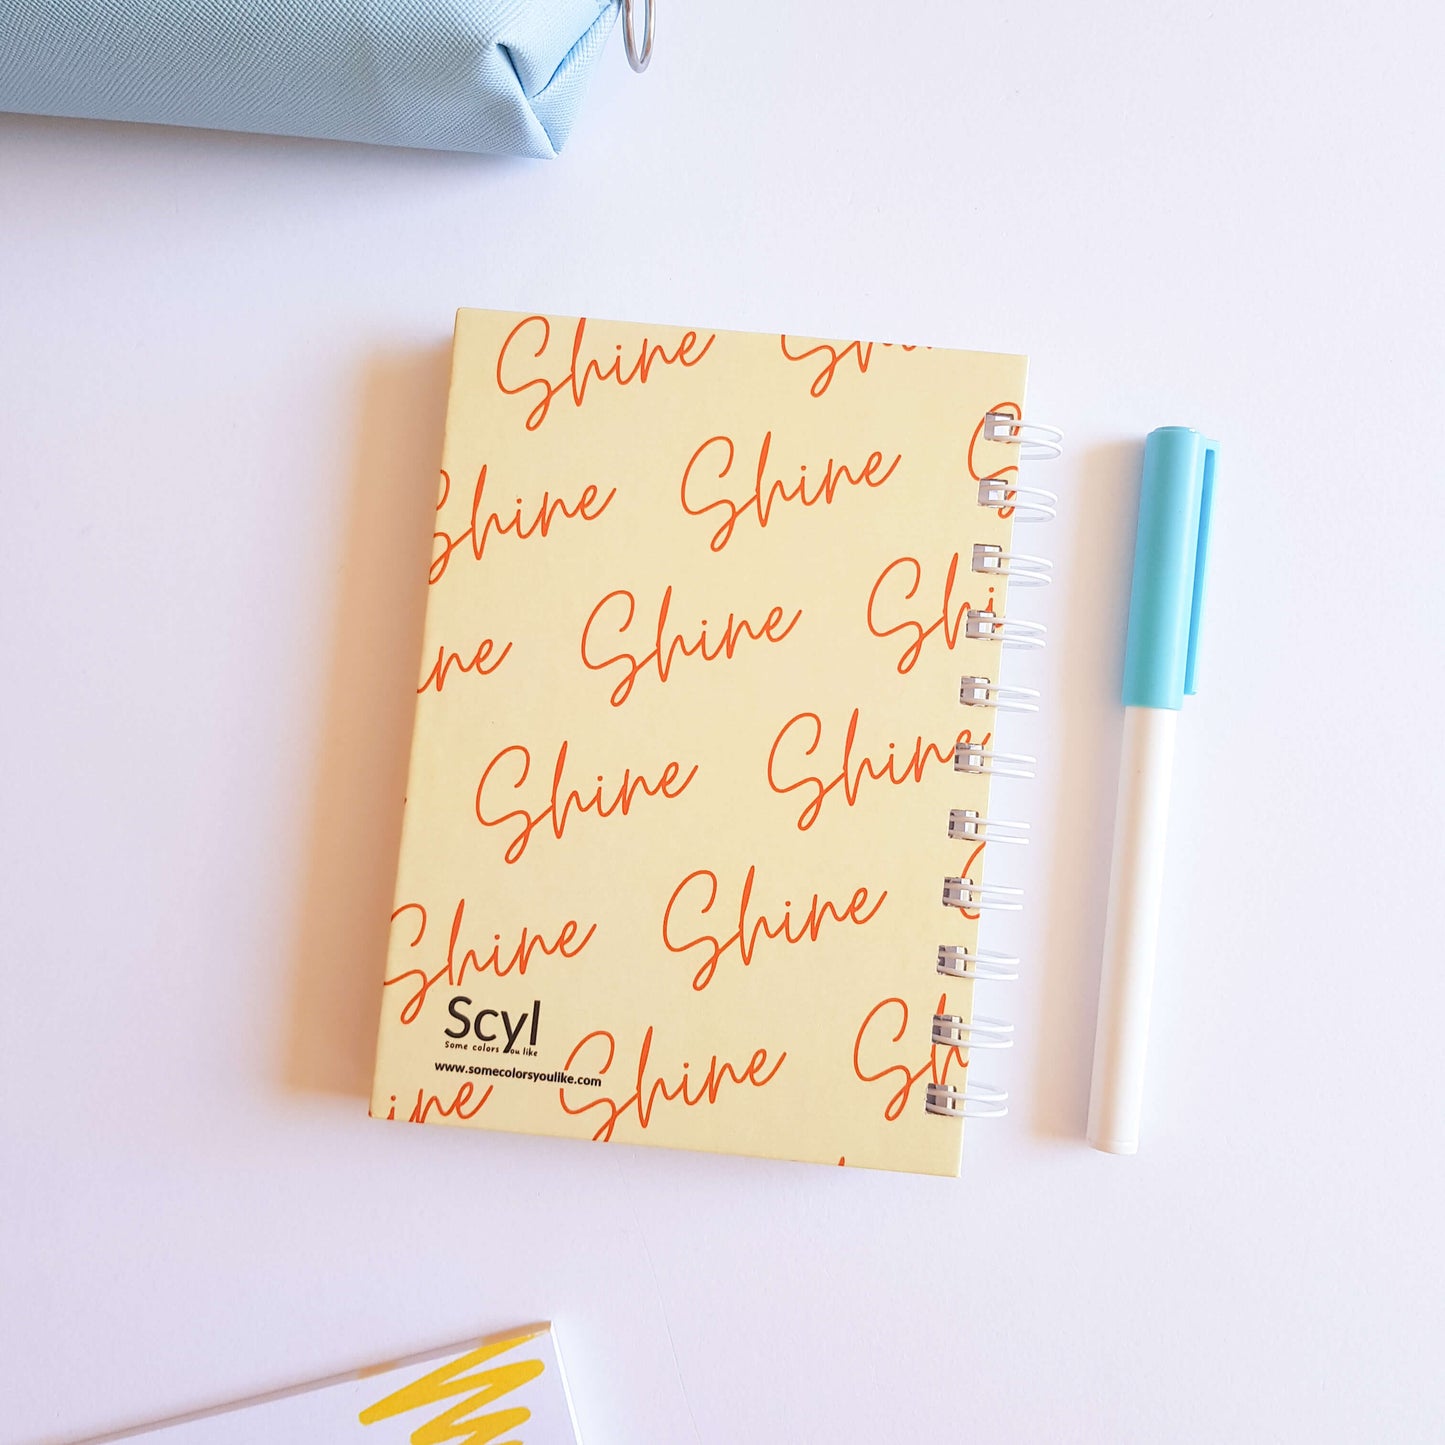 Shine Shi
Shine Shine S
ine Shine Shi
Shine Shine
Shine Shine S
Scyl
Some colors you like
www.somecolorsyoulike.com
ine Shine Sh